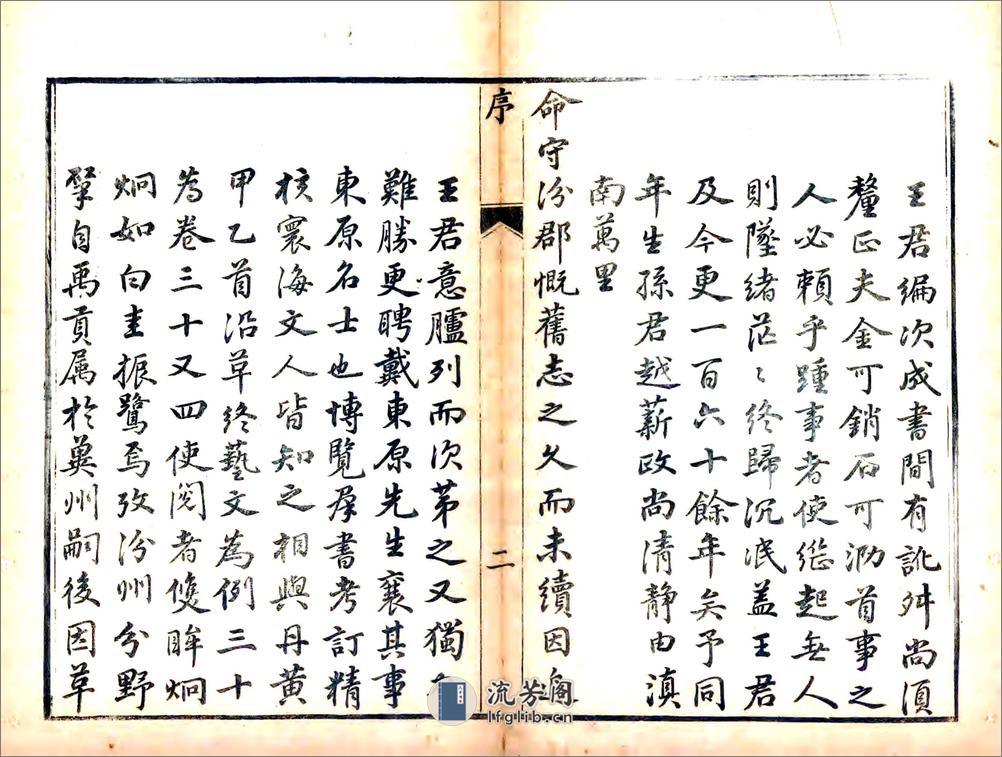 王君編次成書間有訛舛尚須
釐正夫金可銷石可泐首事之
人必賴乎踵事者使繼起無人
則墜緒茫〻終歸沉泯盖王君
及今更一百六十餘年矣予同
年生孫君越薪政尚清静由滇
南萬里
命守汾郡慨舊志之久而未續因
序
二
王君意臚列而次第之又獨
難勝更聘戴東原先生襄其事
東原名士也博覽羣書考訂精
核寰海文人皆知之相與丹黄
甲乙首沿革終藝文為例三十
為卷三十又四使閱者雙眸炯
炯如白圭振鷺焉攷汾州分野
肇自禹貢属於冀州嗣後因革
流芳阁
lfglib.cn